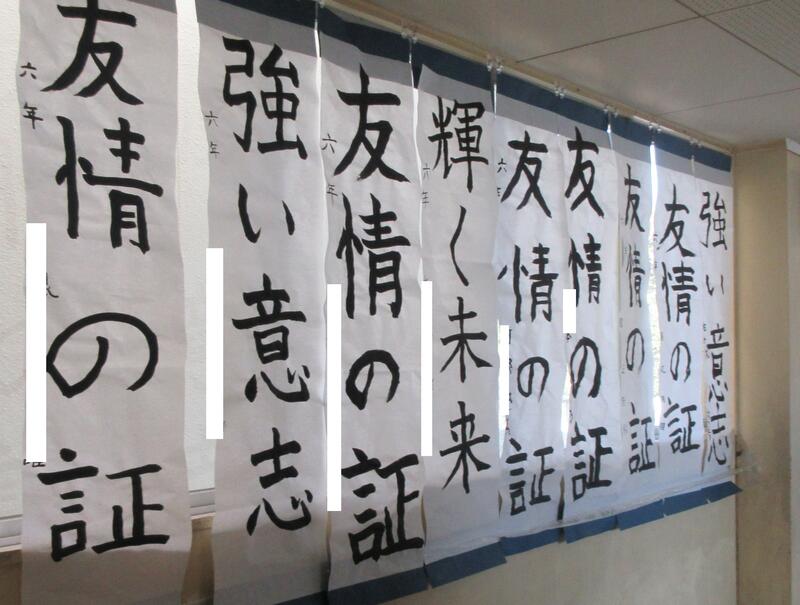 友情の証
六年
強い意志
六年
友情の証
六年
輝く未来
六年
友情の証
六
友情の証
友情の証
友情の証
強い意志